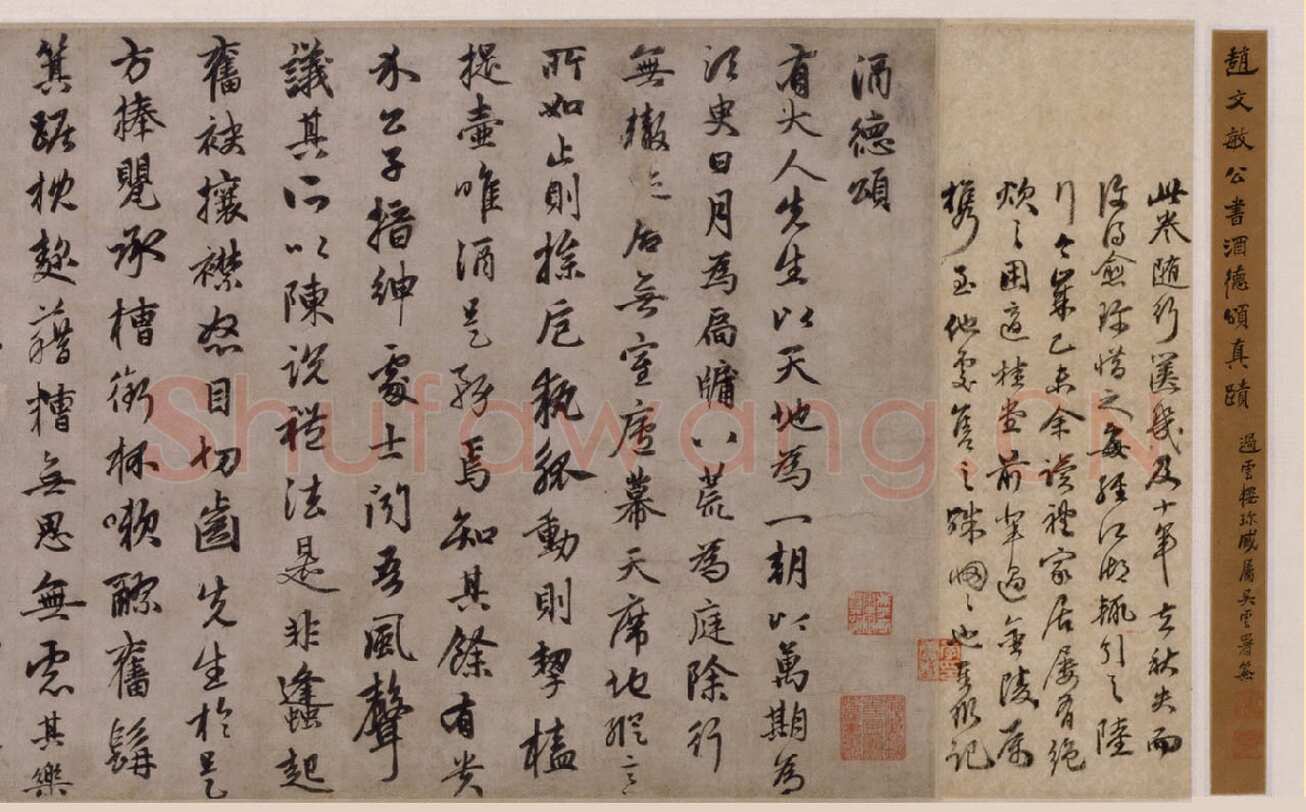 趙文敏公書酒德頌真蹟
過雲樓珍藏屬吳雲署籤
此卷随行篋幾及十年去秋失而
後得愈珍惜之每經江湖輒引之陸
行今歲己未余读禮家居屡有絕
炊之困適桂堂前輩過金陵属
携至他處售之殊惘〻也 記
酒德頌
有大人先生以天地為一朝以萬期為
須臾日月為扃牖八荒為庭除行
無轍迹居無室廬幕天席地縱意
所如止則操卮執觚動則挈榼
提壺唯酒是務焉知其餘有貴
介公子搢紳處士聞吾風聲
議其所以陳說禮法是非蠭起
奮袂攘襟怒目切齒先生於是
方捧甖承槽銜杯嗽醪奮髯
箕踞枕麴藉糟無思無慮其樂
Shufawang.CN